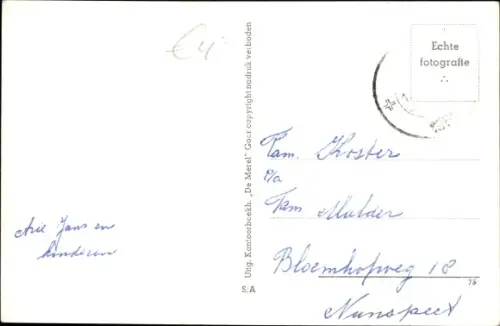 €4,-
Echte
fotografie
Uitg. Kantoorboekh. „De Merel" Goor copyright nadruk verboden
Fam. Koster
p/a
Fam Mulder
Bloemhofweg 18
Nunspeet
Arie Jans en
kinderen
S.A
75